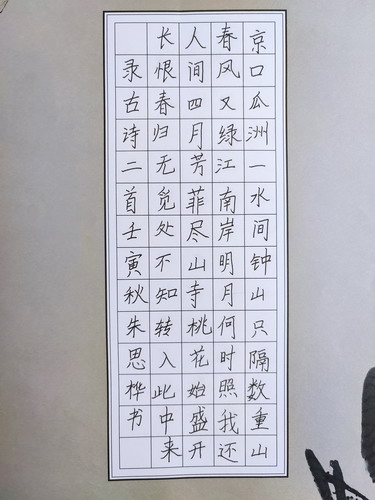 京口瓜洲一水间钟山只隔数重山
春风又绿江南岸明月何时照我还
人间四月芳菲尽山寺桃花始盛开
长恨春归无觅处不知转入此中来
录古诗二首壬寅秋朱思桦书